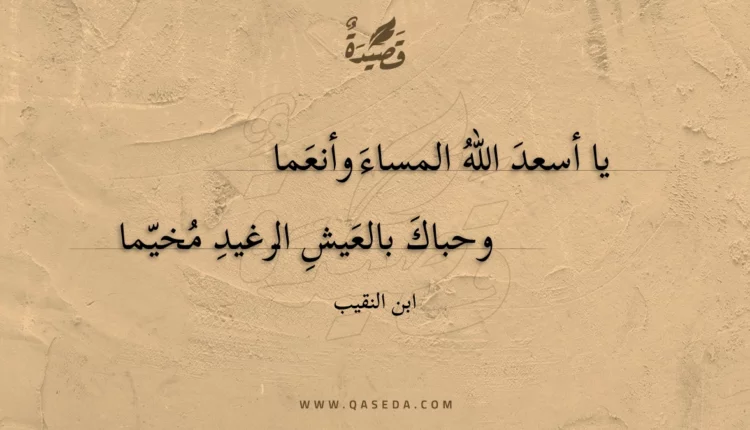 قَصِيدَةٌ
يا أسعدَ اللهُ المساءَ وأنعَما
وحباكَ بالعَيشِ الرغيدِ مُخيّما
ابن النقيب
WWW.QASEDA.COM